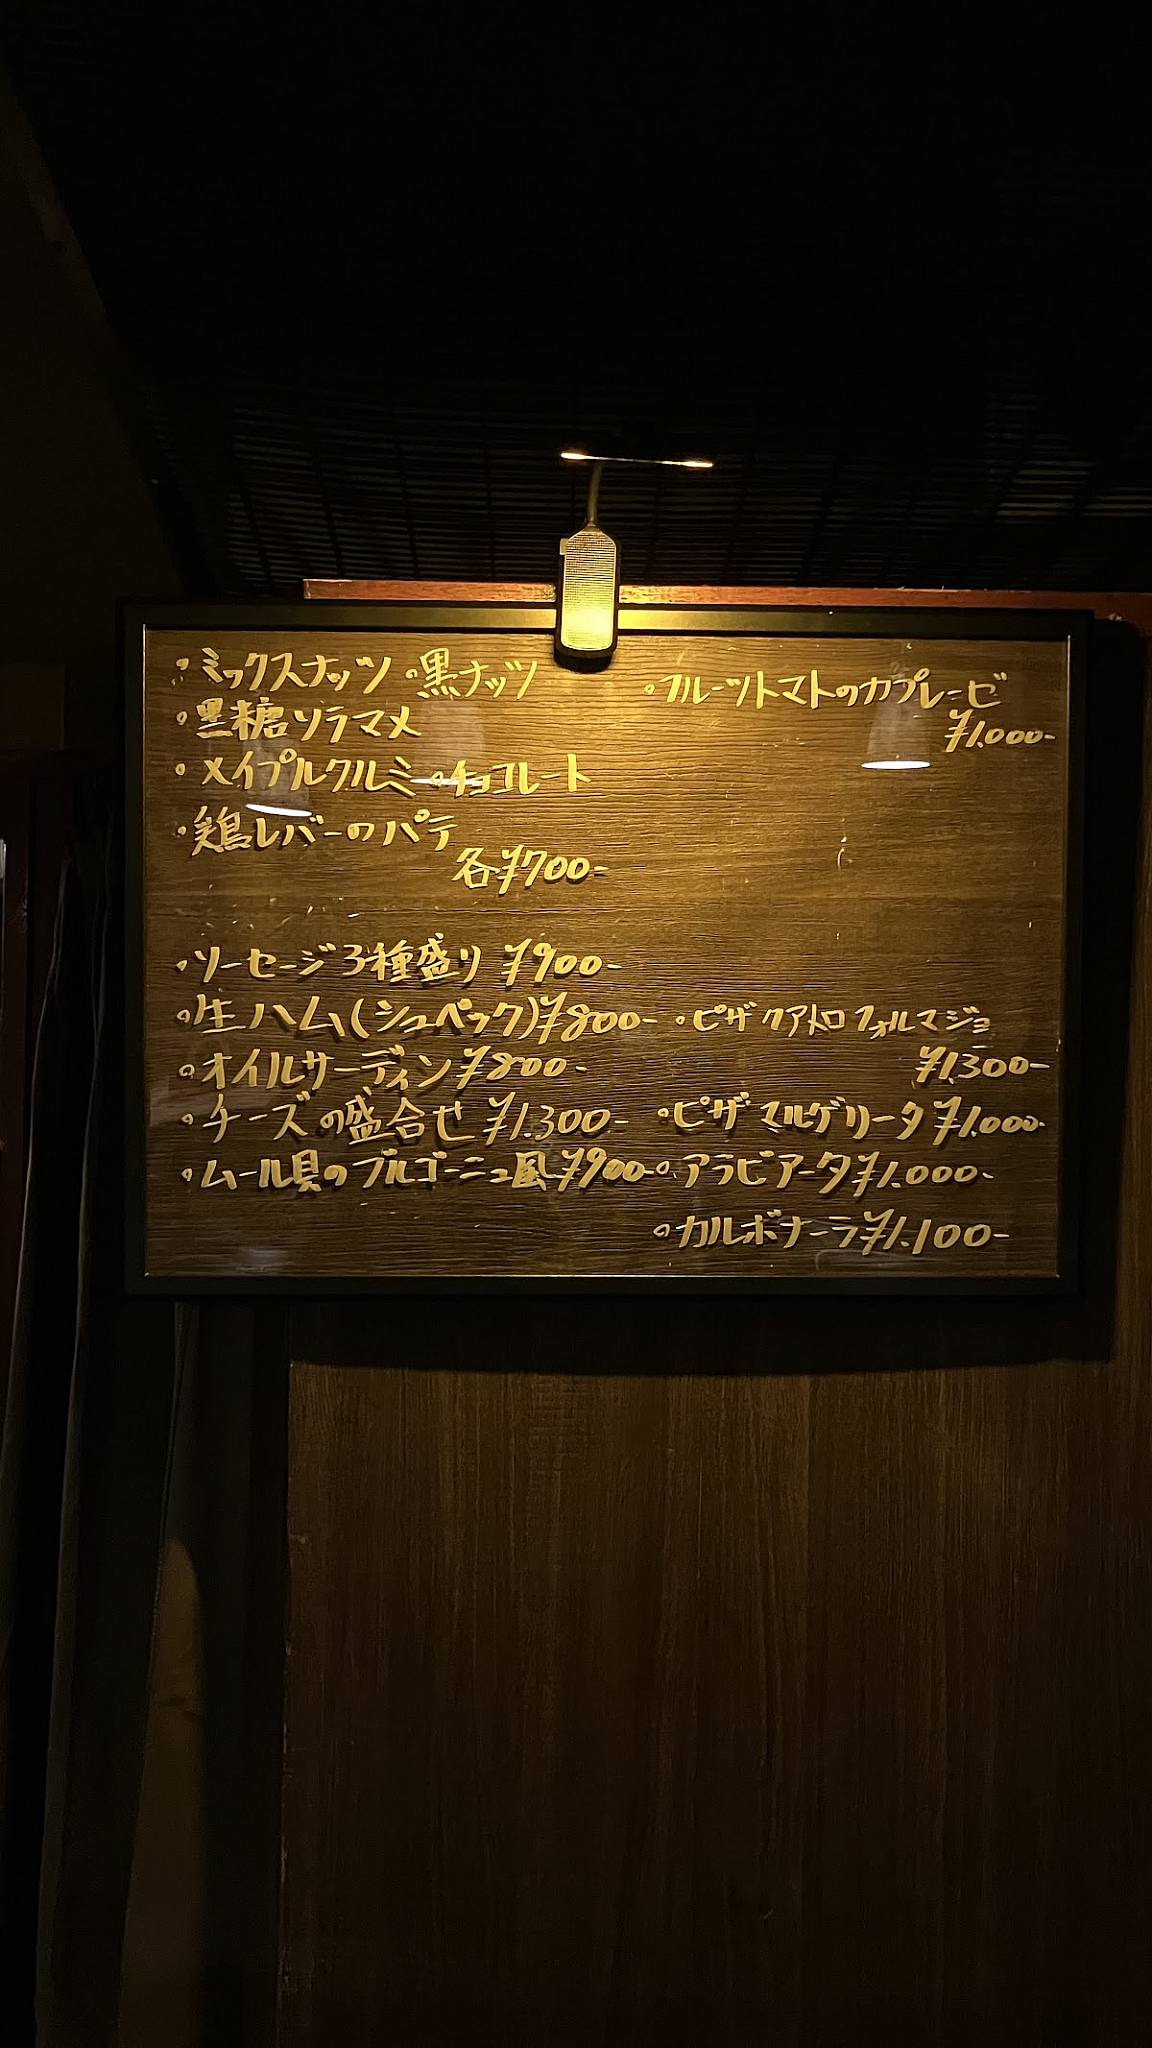 ・ミックスナッツ ・黒ナッツ
・黒糖ソラマメ
・メイプルクルミ ・チョコレート
・鶏レバーのパテ
各¥700-
・フルーツトマトのカプレーゼ
¥1.000-
・ソーセージ3種盛り ¥900-
・生ハム(シュペック)¥800-
・オイルサーディン¥800-
・チーズの盛合せ ¥1.300-
・ムール貝のブルゴーニュ風¥900-
・ピザ クアトロフォルマジョ
¥1.300-
・ピザ マルゲリータ¥1.000-
・アラビアータ¥1.000-
・カルボナーラ¥1.100-